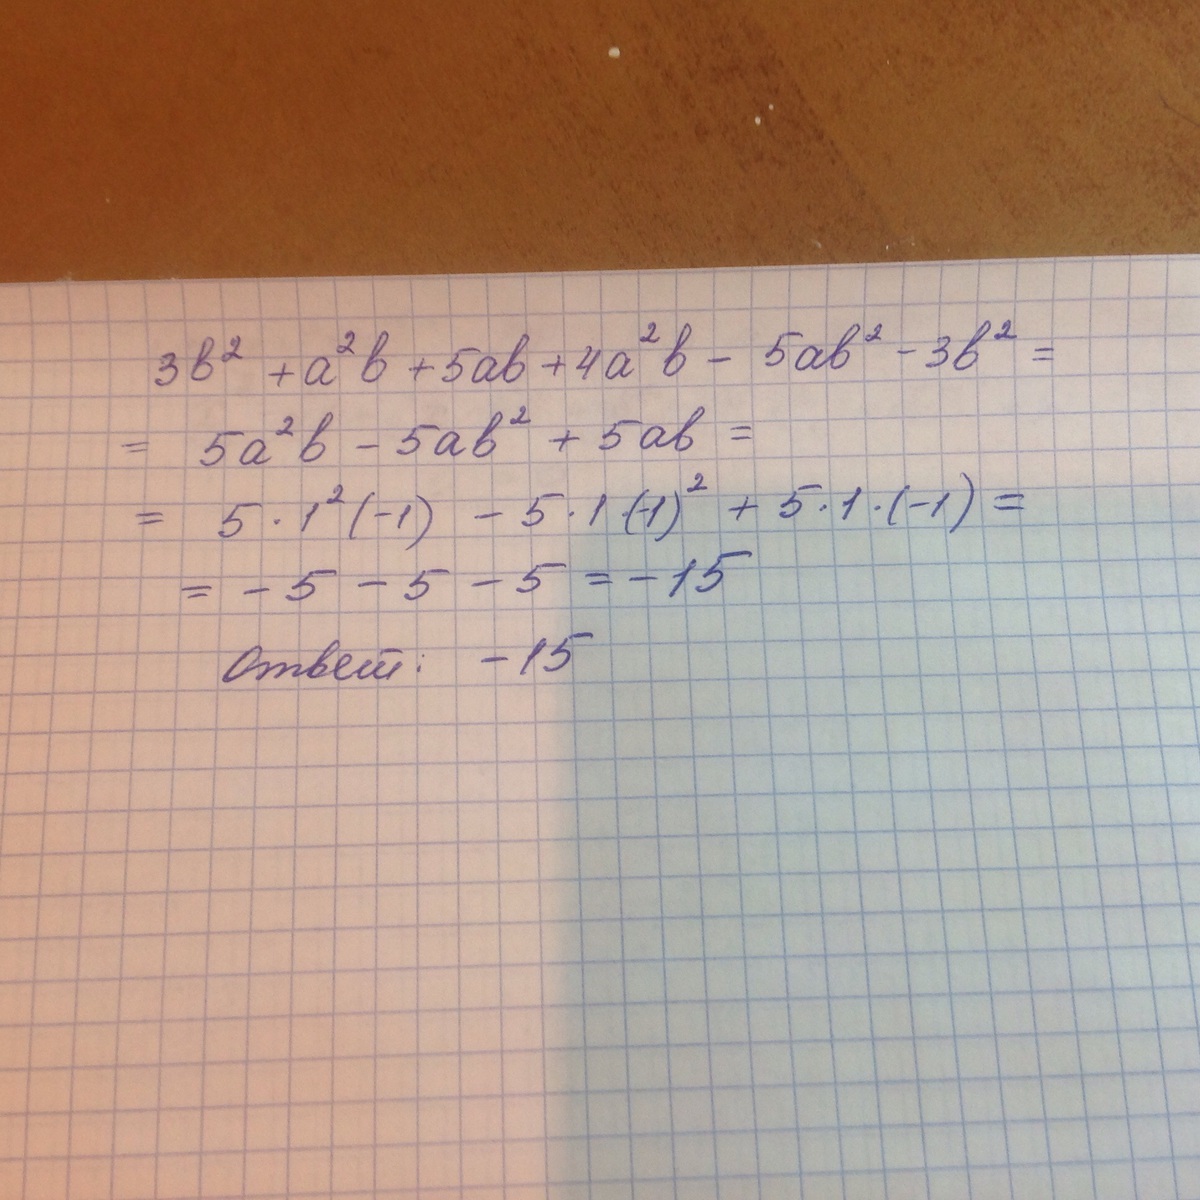 3b² + a²b + 5ab + 4a²b - 5ab² - 3b² =
= 5a²b - 5ab² + 5ab =
= 5 · 1² (-1) - 5 · 1 · (-1)² + 5 · 1 · (-1) =
= - 5 - 5 - 5 = - 15
Ответ: - 15